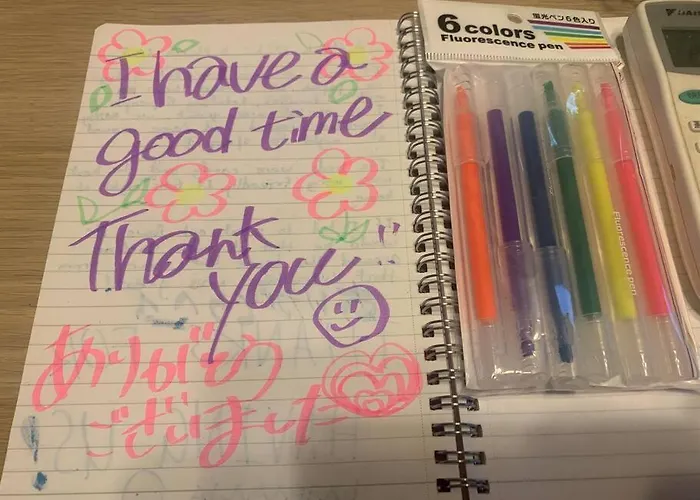 I have a
good time
Thank
you!!
ありがとう
ございました
6 colors
蛍光ペン6色入り
Fluorescence pen
Fluorescence pen